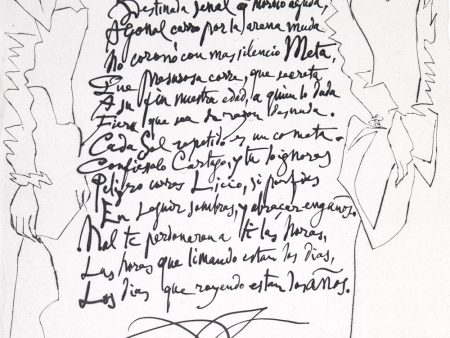 Destinada señal q mordio aguda,
Agonal carro por la arena muda
No coronó con mas silencio Meta,
Que presurosa corre, que secreta
A su fin nuestra edad, a quien lo duda
Fiera que sea de razon desnuda.
Cada Sol repetido es un cometa.
Confiesalo Cartago, y tu lo ignores
Peligro corres Licio, si porfias
En seguir sombras, y abraçar engaños.
Mal te perdonaran a ti las horas,
Las horas que limando estan los dias,
Los dias que royendo estan los años.